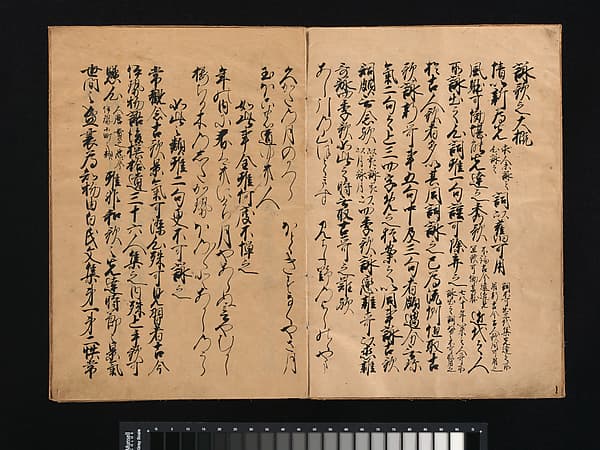 詠歌之大概
情以新為先 求人未詠之心詠之 詞以舊可用 詞不可出三代集先達之所用新古今古人歌同可用之
風躰可効堪能先達之秀歌 不論古今遠近見宜歌可効其躰 近代之人
所詠出之心詞雖一句謹可除弃之 七八十年以来之人歌所詠出之詞努々不可取用之
於古人歌者多以其同詞詠之已為流例但取古
歌詠新哥事五句之中及三句者頗過分無珎
氣二句之上三四字免之猶案之以同事詠古歌
詞頗無念歟 以花詠花以月詠月 以四季歌詠恋雜哥以恋雜
哥詠季歌如此之時無取古哥之難歟
あしひきの山ほとゝきす みよしのゝよしのゝやま
久かたの月のかつら ほとゝきすなくやさ月
玉ほこのみち行人
如此事全雖何度不憚之
年の内に春はきにけり 月やあらぬ春やむかし
桜ちる木のした風 ほの／＼とあかしのうら
如此之類雖二句更不可詠之
常觀念古歌之景氣可染心殊可見習者古今
伊勢物語後撰拾遺三十六人集之内殊上手歌可
懸心 人麿貫之忠岑伊勢小町等之類 雖非和歌之先達時節之景氣
世間之盛衰為知物由白氏文集第一第二帙常